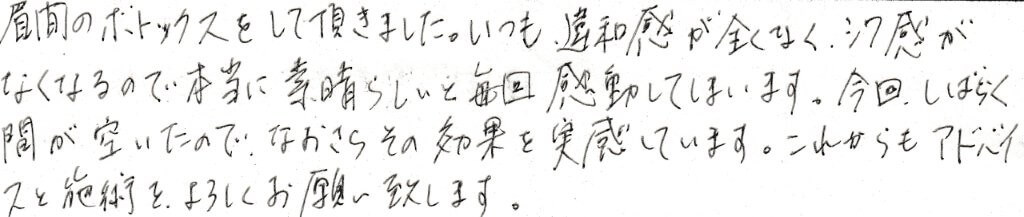 眉間のボトックスをして頂きました。いつも違和感が全くなく、シワ感が
なくなるので本当に素晴らしいと毎回感動してしまいます。今回、しばらく
間が空いたので、なおさらその効果を実感しています。これからもアドバイ
スと施術を、よろしくお願い致します。